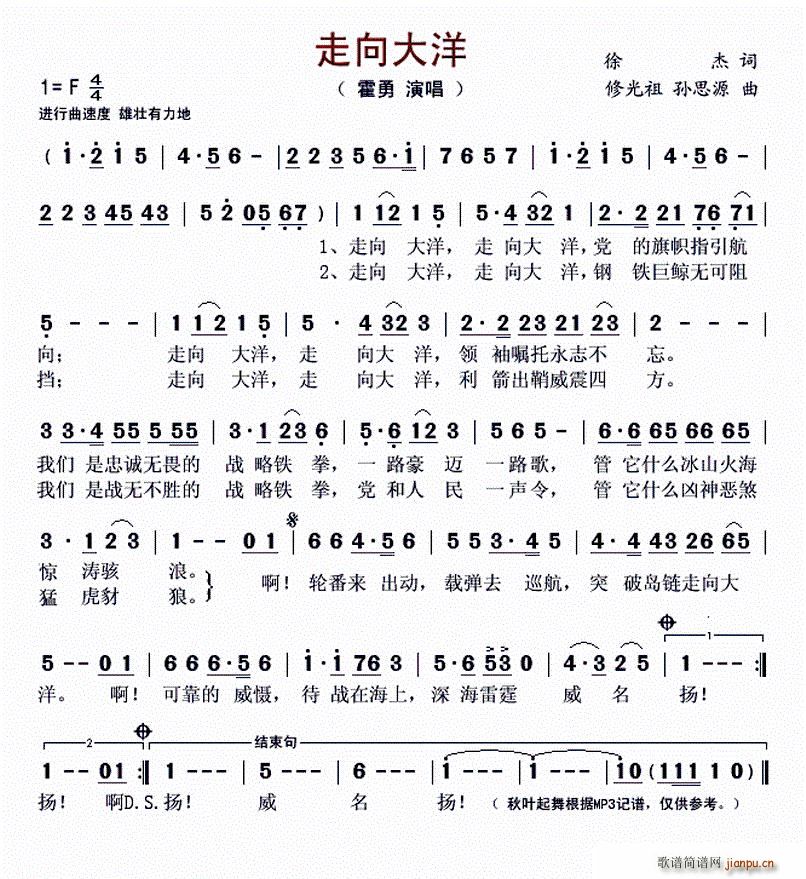 走向大洋
徐 杰 词
1= F 4/4
( 霍勇 演唱 )
修光祖 孙思源 曲
进行曲速度 雄壮有力地
( 1·2 1 5 | 4·5 6 - | 2 2 3 5 6·1 | 7 6 5 7 | 1·2 1 5 | 4·5 6 - |
2 2 3 45 43 | 5 2 05 67 ) | 1 12 1 5 | 5·4 32 1 | 2·2 21 76 71 |
1、走向 大洋， 走 向大 洋，党 的旗帜指引航
2、走向 大洋， 走 向大 洋，钢 铁巨鲸无可阻
5 - - - | 1 12 1 5 | 5 · 4 32 3 | 2·2 23 21 23 | 2 - - - |
向； 走向 大洋，走 向大 洋，领 袖嘱托永志不 忘。
挡； 走向 大洋，走 向大 洋，利 箭出鞘威震四 方。
3 3·4 55 5 55 | 3·1 23 6 | 5·6 12 3 | 5 6 5 - | 6·6 65 66 65 |
我们 是忠诚无畏的 战 略铁 拳，一 路豪 迈 一路歌， 管 它什么冰山火海
我们 是战无不胜的 战 略铁 拳，党 和人 民 一声令， 管 它什么凶神恶煞
3 · 1 2 3 | 1 - - 0 1 | 6 6 4·5 6 | 5 5 3·4 5 | 4·4 43 26 65 |
惊 涛骇 浪。 啊！轮番来 出动，载弹去 巡航，突 破岛链走向大
猛 虎豺 狼。
5 - - 0 1 | 6 6 6·5 6 | 1·1 76 3 | 5·6 53 0 | 4·3 2 5 | 1 - - - :‖
1
洋。 啊！可靠的 威慑，待 战在海上，深 海雷霆 威 名 扬！
2 结束句
1 - - 01 :‖ 1 - - - | 5 - - - | 6 - - - | 1 - - - | 1 - - - | 10 ( 111 1 0 ) ‖
扬！ 啊D.S.扬！ 威 名 扬！ ( 秋叶起舞根据MP3记谱，仅供参考。)
歌谱简谱网
jianpu.cn